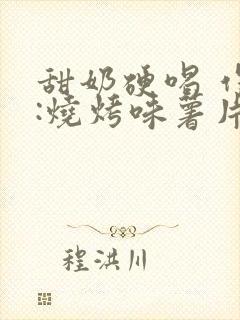 甜奶硬唱
:燒烤味薯片
程洪川